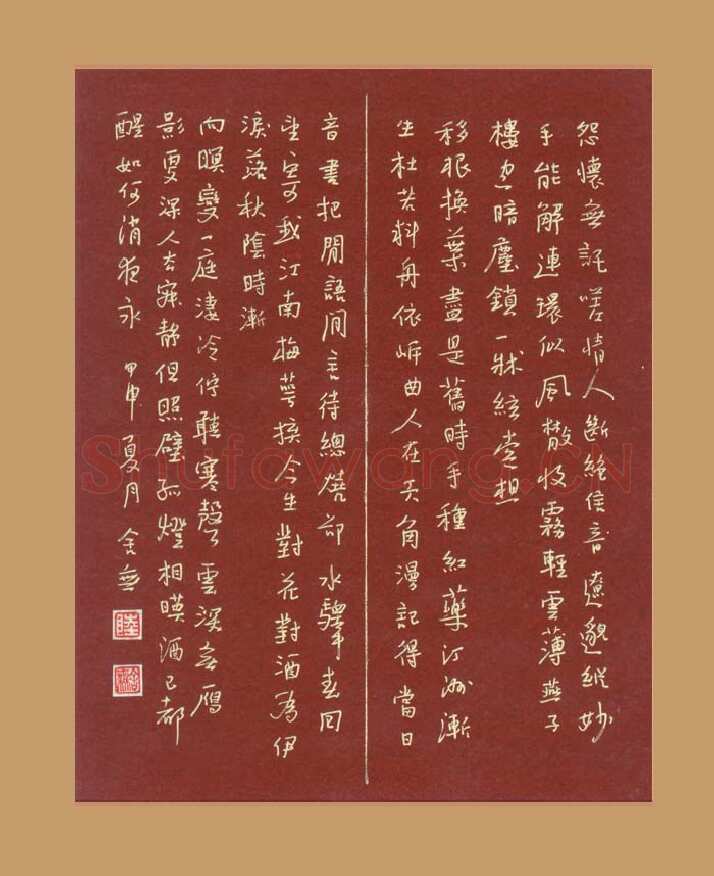 怨懷無託嗟情人斷絕信音遼邈縱妙
手能解連環似風散收霧輕雲薄燕子
樓空暗塵鎖一牀絃索想
移根換葉盡是舊時手種紅藥汀洲漸
生杜若料舟依岸曲人在天角漫記得當日
音書把閒語閒言待總燒却水驛春回
望寄我江南梅萼拚今生對花對酒為伊
淚落秋陰時漸
向暝變一庭淒冷佇聽寒聲雲深無雁
影更深人去寂靜但照壁孤燈相暎酒已都
醒如何消夜永 甲申夏月 舍無
Shufawang.CN